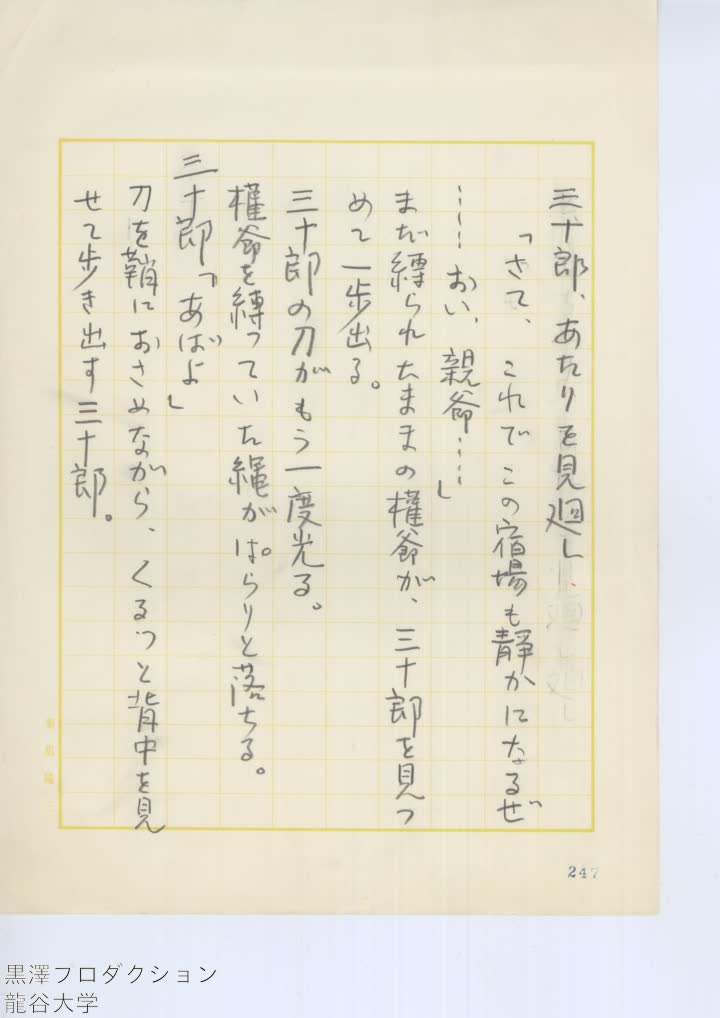 三十郎、あたりを見廻し
「さて、これでこの宿場も静かになるぜ
……おい、親爺……」
まだ縛られたままの権爺が、三十郎を見つ
めて一歩出る。
三十郎の刀がもう一度光る。
権爺を縛っていた縄がぱらりと落ちる。
三十郎「あばよ」
刀を鞘におさめながら、くるっと背中を見
せて歩き出す三十郎。
247
黒澤プロダクション
龍谷大学